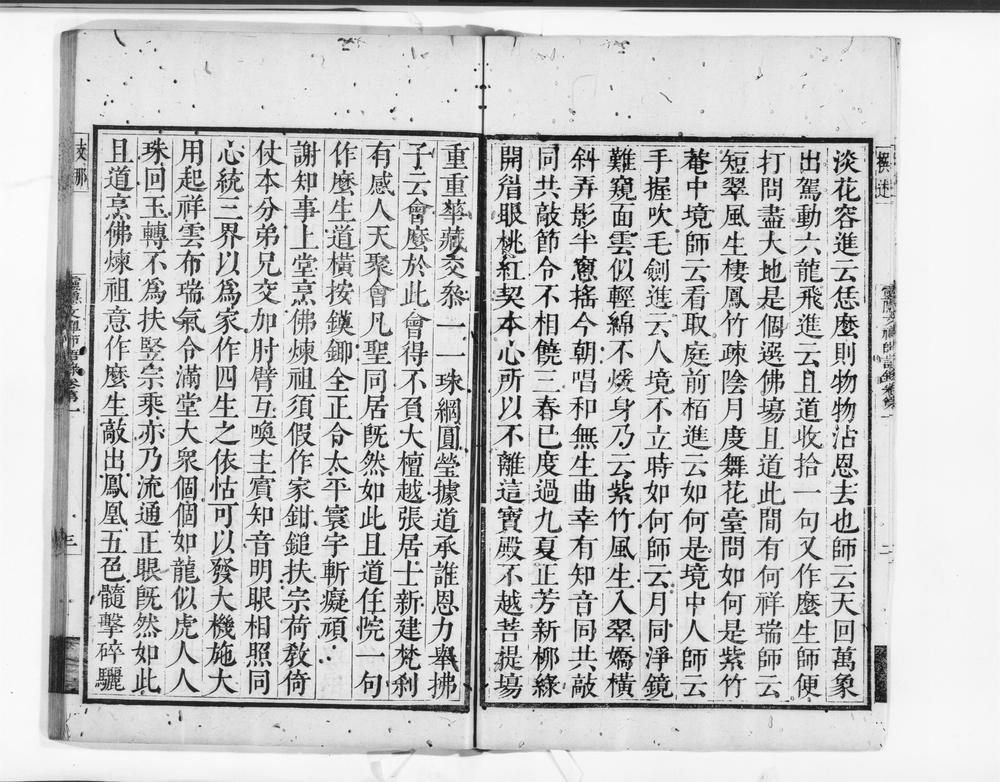 淡花容進云恁麼則物物沾恩去也師云天回萬象
出駕動六龍飛進云且道收拾一句又作麼生師便
打問盡大地是個選佛塲且道此間有何祥瑞師云
短翠風生棲鳳竹疎陰月度舞花臺問如何是紫竹
菴中境師云看取庭前栢進云如何是境中人師云
手握吹毛劍進云人境不立時如何師云月同淨鏡
難窺面雲似輕綿不煖身乃云紫竹風生入翠嬌橫
斜弄影半窻搖今朝唱和無生曲幸有知音同共敲
同共敲節令不相饒三春已度過九夏正芳新柳綠
開眉眼桃紅契本心所以不離這寶殿不越菩提塲
重重華藏交叅一一珠綱圓瑩據道承誰恩力舉拂
子云會麼於此會得不負大檀越張居士新建梵剎
有感人天聚會凡聖同居旣然如此且道住院一句
作麼生道橫按鏌鎁全正令太平寰宇斬癡頑
謝知事上堂烹佛煉祖須假作家鉗鎚扶宗荷敎倚
仗本分弟兄交加肘臂互喚主賓知音明眼相照同
心統三界以爲家作四生之依怙可以發大機施大
用起祥雲布瑞氣令滿堂大衆個個如龍似虎人人
珠回玉轉不爲扶竪宗乘亦乃流通正眼旣然如此
且道烹佛煉祖意作麼生敲出鳳凰五色髓擊碎驪
二
三